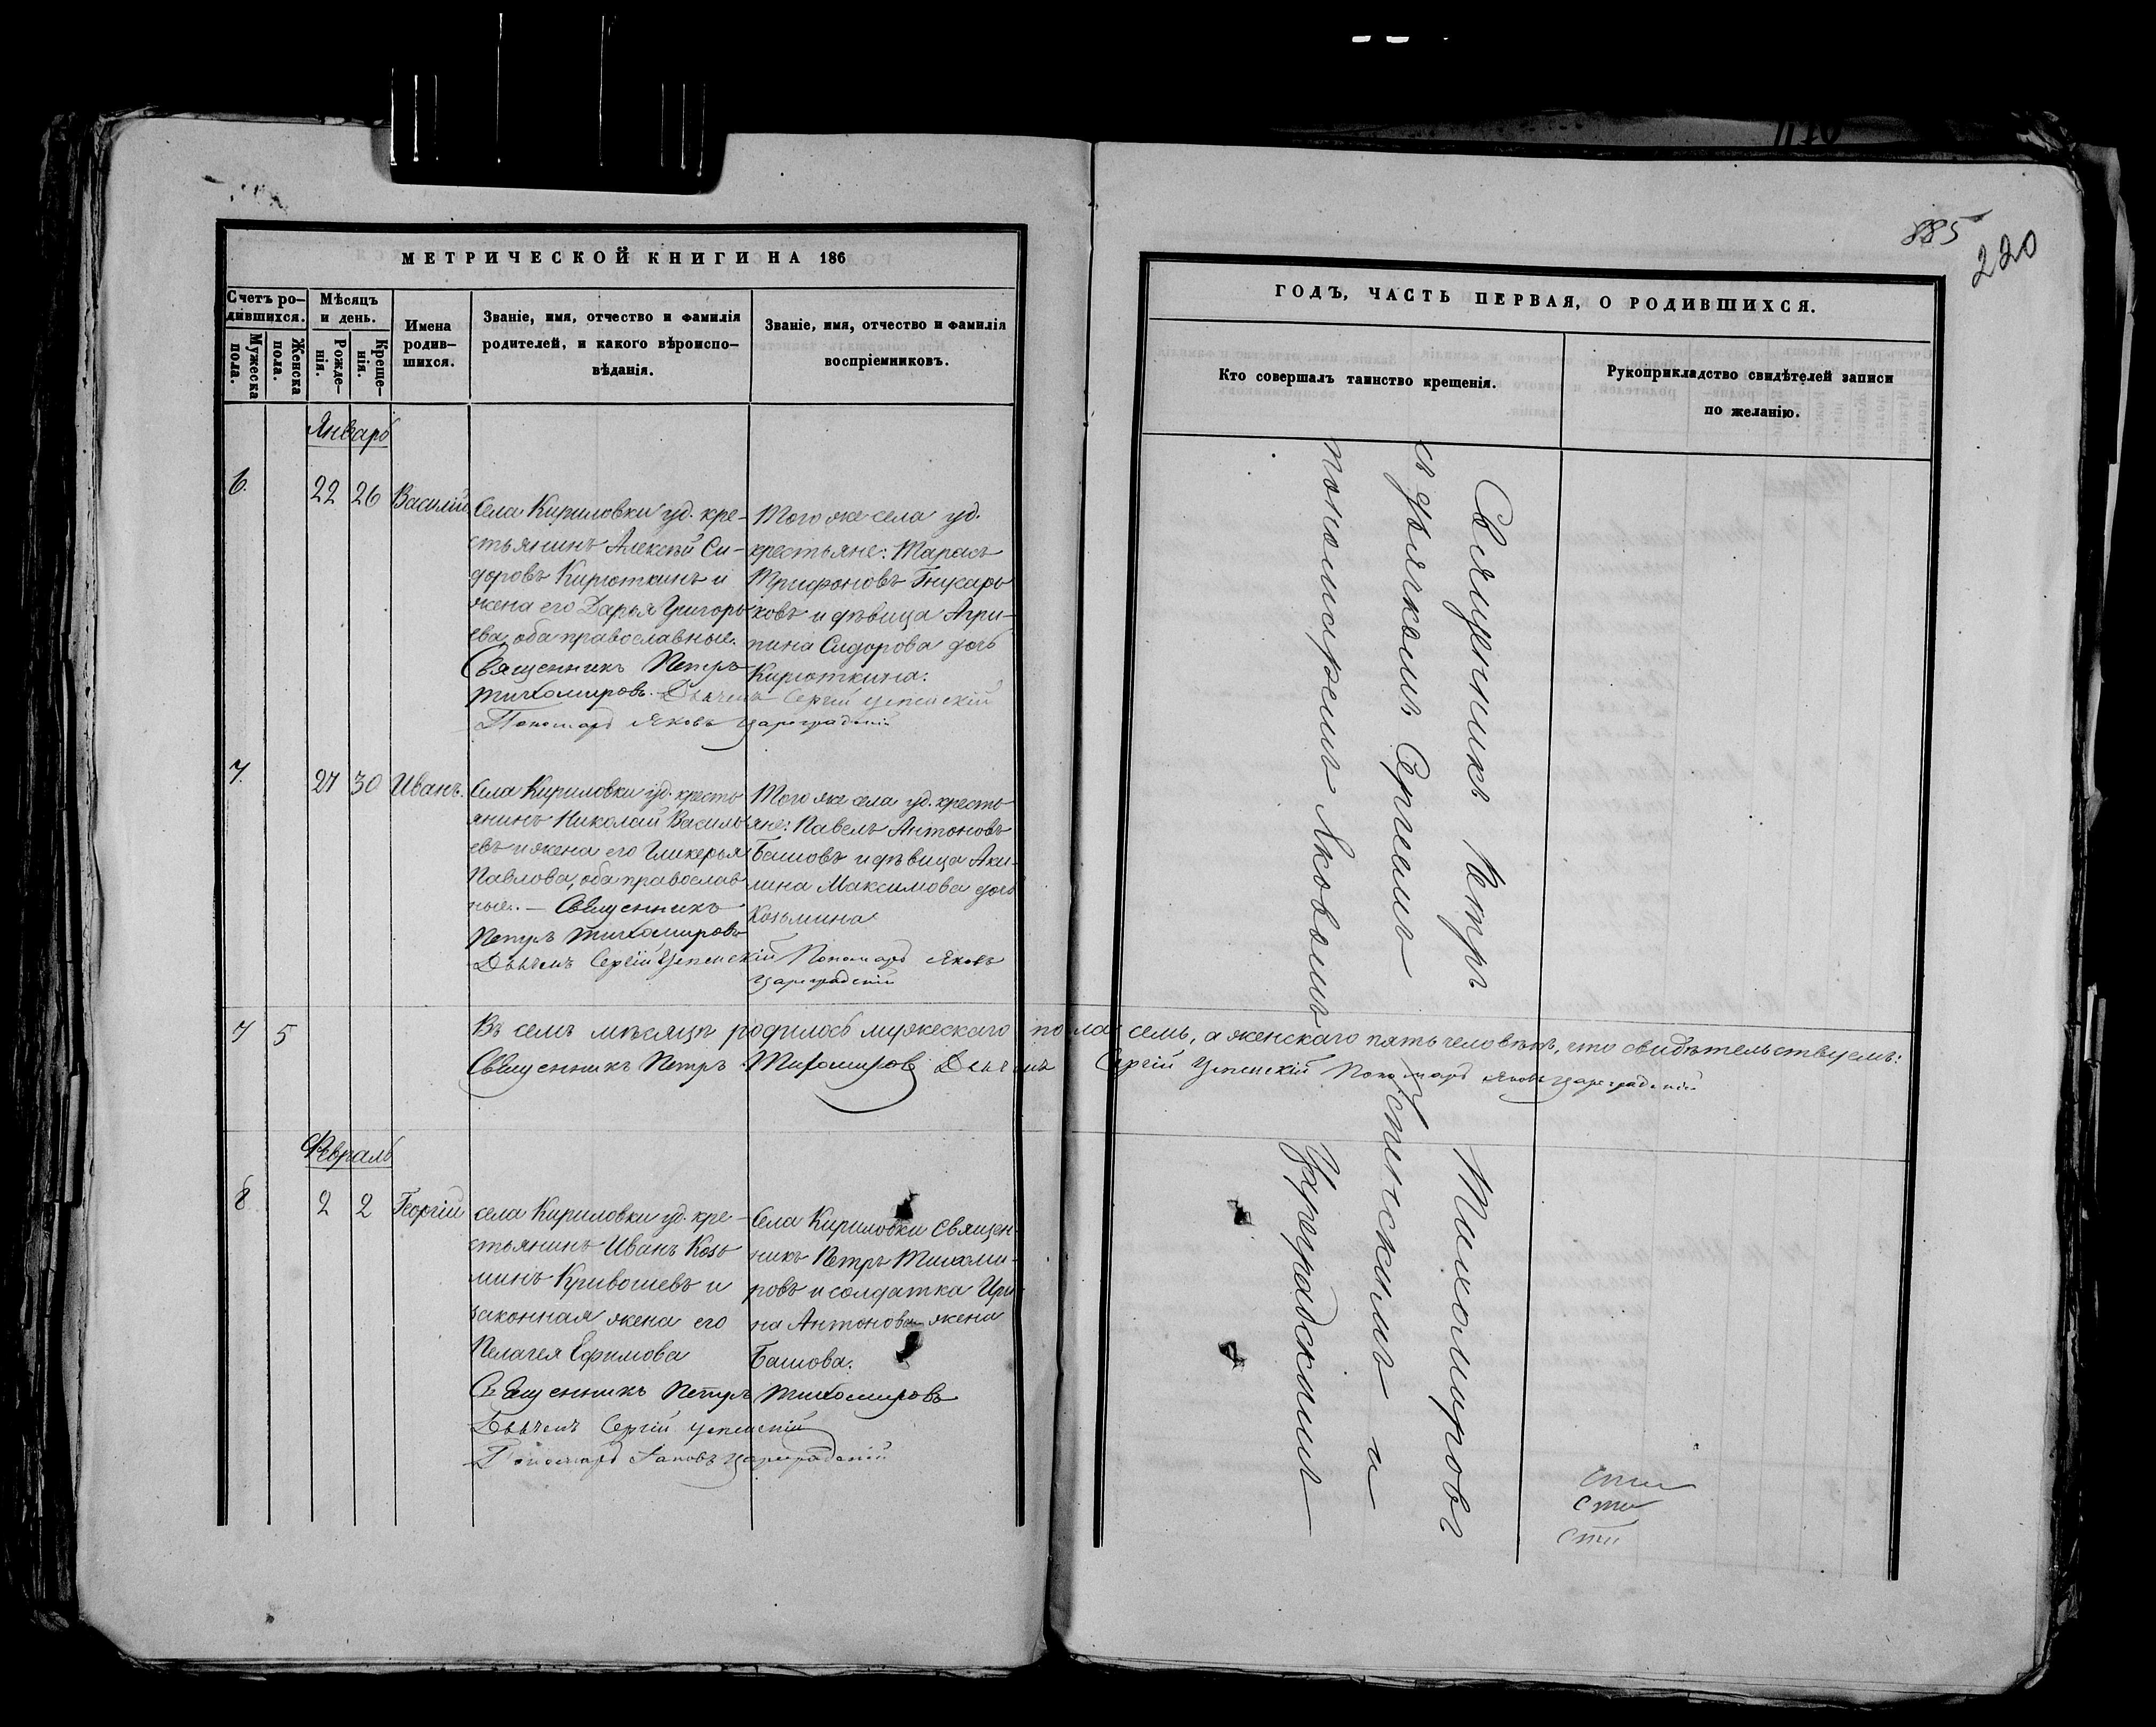 885
220
МЕТРИЧЕСКОЙ КНИГИ НА 186
Счетъ ро-
дившихся.
Мужеска
пола.
Женска
пола.
Мѣсяцъ
и день.
Рожде-
нія.
Креще-
нія.
Имена
родив-
шихся.
Званіе, имя, отчество и фамилія
родителей, и какого вѣроиспо-
вѣданія.
Званіе, имя, отчество и фамилія
воспріемниковъ.
Январь
6. 22 26 Василій
Села Кириловки уд. кре-
стьянинъ Алексѣй Си-
доровъ Кирюткинъ и
жена его Дарья Григорь
ева, оба православные.
Священникъ Петръ
Тихомировъ. Дьячекъ Сергій Успенскій
Пономарь Яковъ Цареградскій
Того же села уд.
крестьяне: Тарасъ
Трифоновъ Гнусарь
ковъ и дѣвица Агри-
пина Сидорова дочь
Кирюткина.
7. 27 30 Иванъ.
Села Кириловки уд. кресть
янинъ Николай Василь
евъ и жена его Гликерья
Павлова, оба православ
ные. — Священникъ
Петръ Тихомировъ
Дьячекъ Сергій Успенскій Пономарь Яковъ
Цареградскій
Того же села уд. кресть
яне: Павелъ Антоновъ
Башовъ и дѣвица Аки-
лина Максимова дочь
Козьмина
7 5
Въ семъ мѣсяцѣ родилось мужескаго пола семь, а женскаго пять человѣкъ, что свидѣтельствуемъ:
Священникъ Петръ Тихомировъ Дьячекъ Сергій Успенскій Пономарь Яковъ Цареградскій
Февраль
8 2 2 Георгій
села Кириловки уд. кре-
стьянинъ Иванъ Козь
минъ Кривошевъ и
законная жена его
Пелагея Ефимова
Священникъ Петръ Тихомировъ
Дьячекъ Сергій Успенскій
Пономарь Яковъ Цареградскій
Села Кириловки Священ-
никъ Петръ Тихоми-
ровъ и солдатка Ири
на Антонова жена
Башова.
ГОДЪ, ЧАСТЬ ПЕРВАЯ, О РОДИВШИХСЯ.
Кто совершалъ таинство крещенія.
Рукоприкладство свидѣтелей записи
по желанію.
Священникъ Петръ Тихомировъ
съ дьячкомъ Сергѣемъ Успенскимъ и
пономаремъ Яковомъ Цареградскимъ